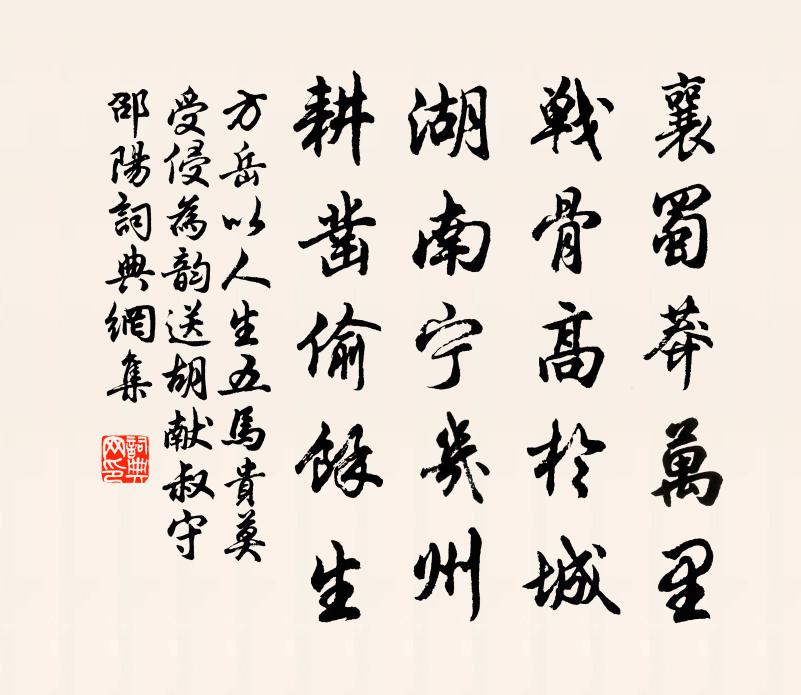 襄蜀莽萬里
戦骨高於城
湖南宁幾州
耕凿偷餘生
方岳以人生五馬貴莫
受侵為韵送胡献叔守
邵陽詞典網集
詞典
网印